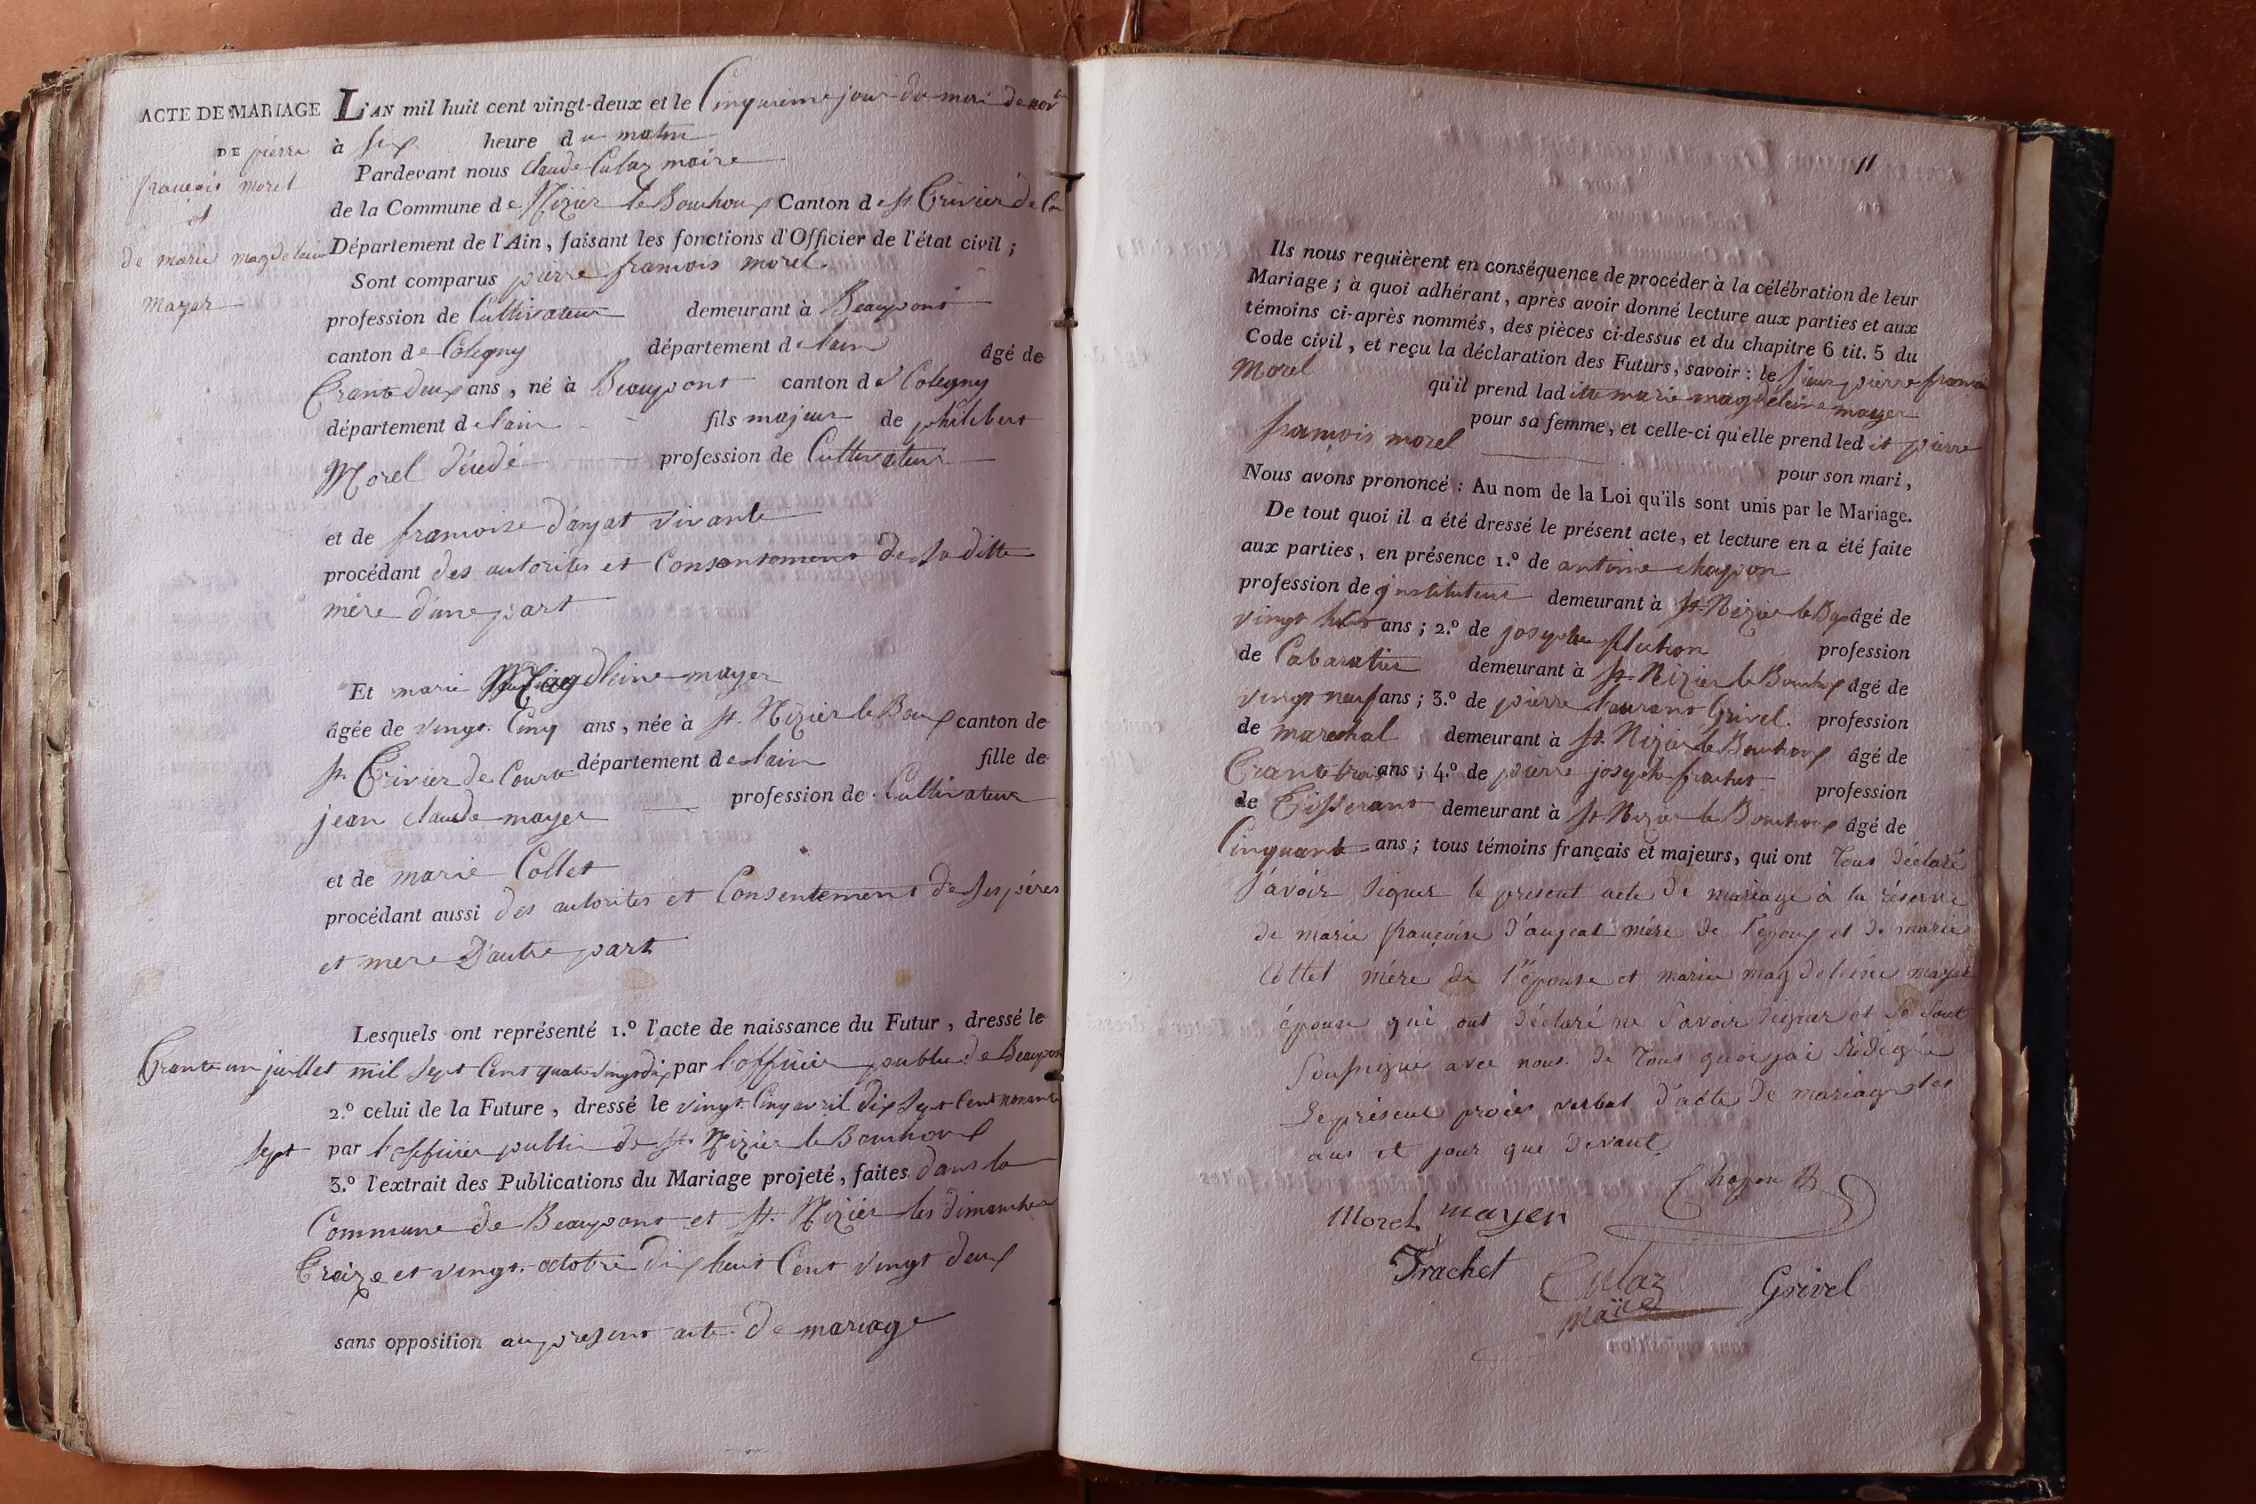 ACTE DE MARIAGE
DE pierre
françois morel
et
de marie magdelaine
mayer
L'AN mil huit cent vingt-deux et le Cinquieme jour du moi de nov.
à six heure du matin
Pardevant nous Claude Culaz maire
de la Commune de Nizier le Bouhoux Canton de St Trivier de Cou
Département de l'Ain, faisant les fonctions d'Officier de l'état civil ;
Sont comparus pierre francois morel
profession de Cultivateur demeurant à Beaupont
canton de Coligny département de lain âgé de
Trante deux ans, né à Beaupont canton de Coligny
département de lain fils majeur de philibert
Morel décédé profession de Cultivateur
et de francoise d'anjat vivante
procédant des autorités et Consentement de sa ditte
mère d'une part
Et marie Magdleine mayer
âgée de vingt Cinq ans, née à St Nizier le Boux canton de
St Trivier de Courte département de lain fille de
jean claude mayer profession de Cultivateur
et de marie Collet
procédant aussi des autorités et Consentement de ses péres
et mere D'autre part
Lesquels ont représenté 1.º l'acte de naissance du Futur, dressé le
Trante un juillet mil sept Cent quatre vingt dix par l'officier public de Beaupont
2.º celui de la Future, dressé le vingt Cinq avril dix sept Cent nonante
sept par l'officier public de St Nizier le Bouhoux
3.º l'extrait des Publications du Mariage projeté, faites dans la
Commune de Beaupont et St Nizier les dimanches
Treize et vingt octobre dix huit Cent vingt deux
sans opposition au present acte de mariage
11
Ils nous requièrent en conséquence de procéder à la célébration de leur
Mariage ; à quoi adhérant, après avoir donné lecture aux parties et aux
témoins ci-après nommés, des pièces ci-dessus et du chapitre 6 tit. 5 du
Code civil, et reçu la déclaration des Futurs, savoir : le sieur pierre francois
Morel qu'il prend ladite marie magdeleine mayer
pour sa femme, et celle-ci qu'elle prend ledit pierre
francois morel pour son mari,
Nous avons prononcé : Au nom de la Loi qu'ils sont unis par le Mariage.
De tout quoi il a été dressé le présent acte, et lecture en a été faite
aux parties, en présence 1.º de antoine chapon
profession de jnstituteur demeurant à St Nizier le Bx âgé de
vingt huit ans ; 2.º de josephe profession
de Cabaratier demeurant à St Nizier le Bouhoux âgé de
vingt neuf ans ; 3.º de pierre laurant Grivel profession
de marechal demeurant à St Nizier le Bouhoux âgé de
Trante trois ans ; 4.º de pierre joseph frachet profession
de Tisserant demeurant à St Nizier le Bouhoux âgé de
Cinquante ans ; tous témoins français et majeurs, qui ont Tous déclaré
savoir signer le présent acte de mariage à la réserve
de marie françoise d'anjeat mére de l'epoux et de marie
Collet mére de l'épouse et marie magdeleine mayer
épouse qui ont déclaré ne savoir signer et se sont
soussigné avec nous de Tous quoi jai rédigé
le présent procès verbal d'acte de mariage les
ans et jour que devant
Chapon
Morel mayer
Frachet Culaz Grivel
maire